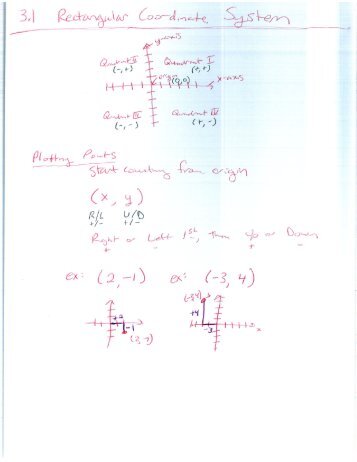 3.1 Rectangular Coordinate System
y-axis
Quadrant II Quadrant I
(-,+) (+,+)
origin (0,0) x-axis
Quadrant III Quadrant IV
(-,-) (+,-)
Plotting Points
Start counting from origin
(x, y)
R/L U/D
+/- +/-
Right or Left 1st, then Up or Down
+ - + -
ex: (2,-1) ex: (-3, 4)
(-3,4)
+2 +4
-1 -3 x
(2,-1)